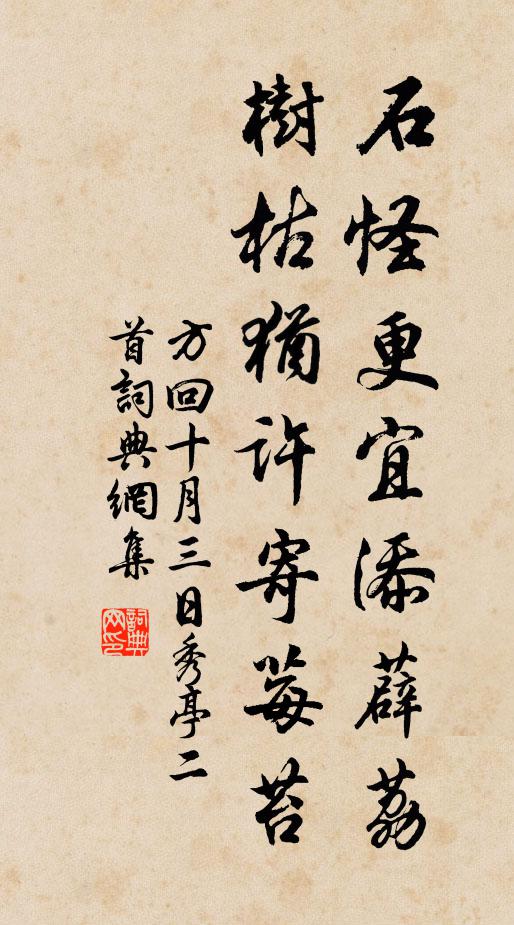 石怪更宜添薜荔
樹枯猶許寄莓苔
方回十月三日秀亭二
首詞典網集
詞典
网印